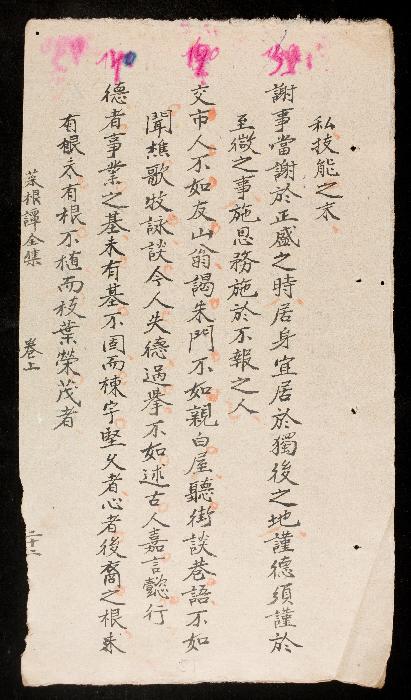 私技能之末
謝事當謝於正盛之時居身宜居於獨後之地謹德須謹於
至微之事施恩務施於不報之人
交市人不如友山翁謁朱門不如親白屋聽街談巷語不如
聞樵歌牧詠談今人失德過舉不如述古人嘉言懿行
德者事業之基未有基不固而棟宇堅久者心者後裔之根未
有根未有根不植而枝葉榮茂者
菜根譚全集 卷上 二十二